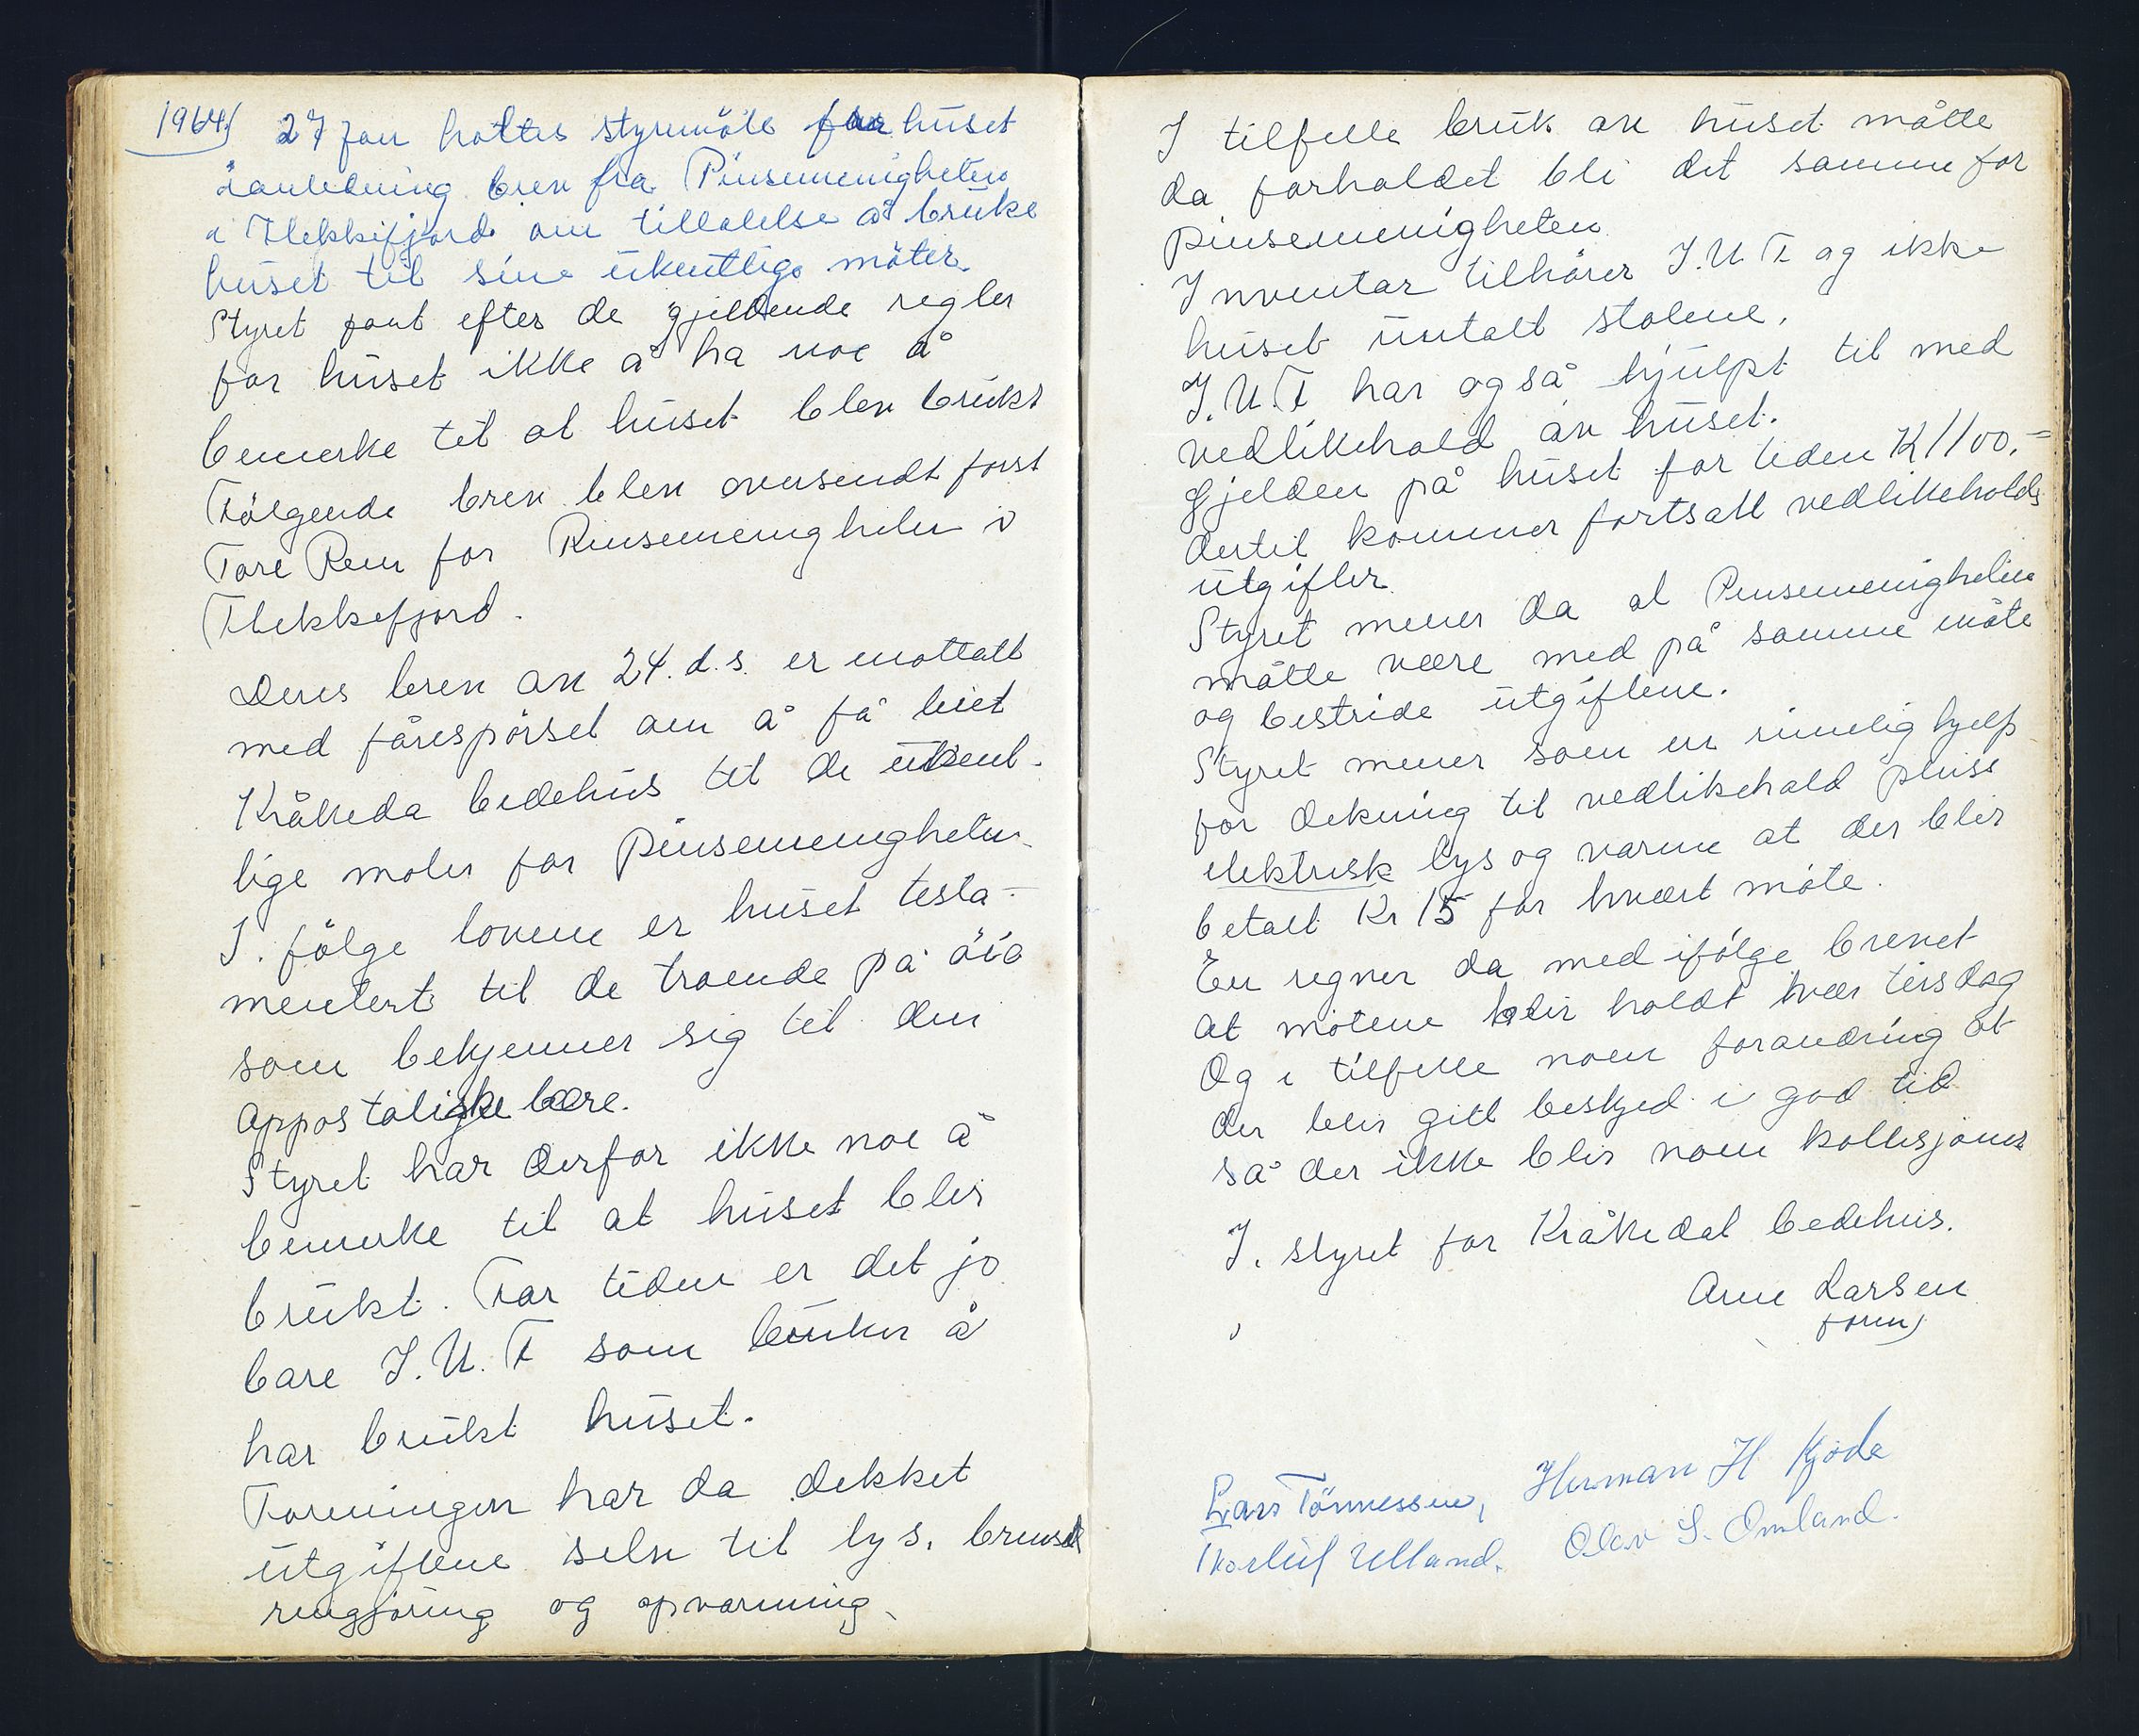 1964)
27 jan holtes styremöte for huset
ianledning brev fra Pinsemenigheten
i Flekkifjord om tillatelse at bruke
huset til sine ukentlige möter.
Styret fant efter de gjeldende regler
for huset ikke å ha noe å
bemerke til at huset blev brukt
Fölgende brev blev oversendt forst
Tore Rem for Pinsemenigheten i
Flekkefjord.
Deres brev av 24.d.s. er mottatt
med förespörsel om å få leiet
Kråkeda bedehus til de ukent-
lige moter for Pinsemenigheten.
I. fölge lovene er huset testa-
mentert til de troende på öia
som bekjenner sig til den
appostoliske lære.
Styret har derfor ikke noe å
bemerke til at huset blir
brukt. For tiden er det jo
bare I.U.F som bruker å
har brukt huset.
Foreningen har da dekket
utgiftene selv til lys, brensel
rengjöring og opvarming
I tilfelle bruk av huset måtte
da forholdet bli det samme for
pinsemenigheten
Inventar tilhörer I.U.F og ikke
huset untatt stolene.
I.U.F har også hjulpt til med
vedlikehold av huset.
Gjelden på huset for tiden K 1100.=
dertil kommer fortsatt vedlikeholds
utgifter
Styret mener da at Pinsemenigheten
måtte være med på samme måte
og bestride utgiftene.
Styret mener som en rimelig hjelp
for dekning til vedlikehold pluss
elektrisk lys og varme at der blir
betalt Kr 15 for hvært möte.
En regner da med ifölge brevet
at mötene blir holdt hvær tirsdag
Og i tilfelle noen forandring at
der blir gitt beskjed i god tid
så der ikke blir noen kollisjoner
I. styret for Kråkedal bedehus.
Arne Larsen
form)
Lars Tönnessen, Herman H Kjöde
Thorleif Ulland. Olav S. Omland.